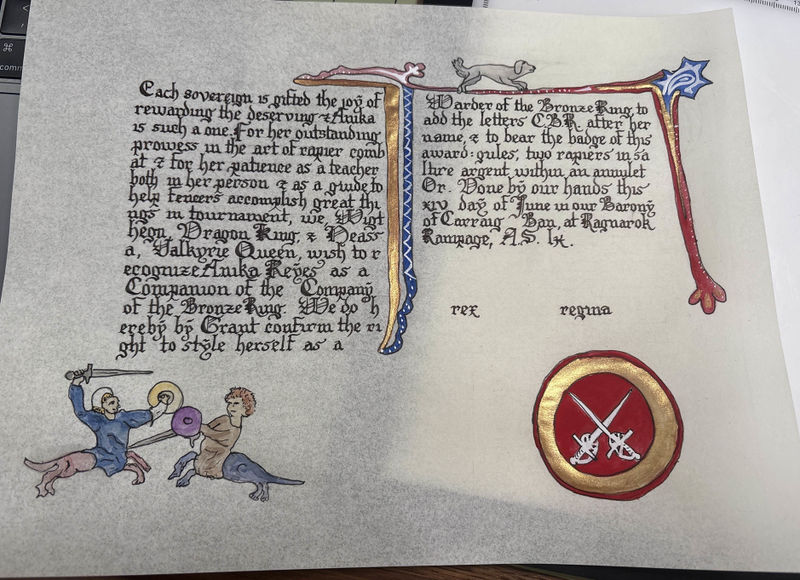 Each sovereign is gifted the joy of
rewarding the deserving & Anika
is such a one. For her outstanding
prowess in the art of rapier comb
at & for her patience as a teacher
both in her person & as a guide to
help fencers accomplish great thi
ngs in tournament, we, Wigt
hegn, Dragon King, & Deass
a, Valkyrie Queen, wish to r
ecognize Anika Reyes as a
Companion of the Company
of the Bronze Ring. We do h
ereby by Grant confirm the ri
ght to style herself as a
Warder of the Bronze Ring, to
add the letters CBR after her
name, & to bear the badge of this
award: gules, two rapiers in sa
ltire argent within an annulet
Or. Done by our hands this
xiv day of June in our Barony
of Carraig Ban, at Ragnarok
Rampage, A.S. lx.
rex regina
comm